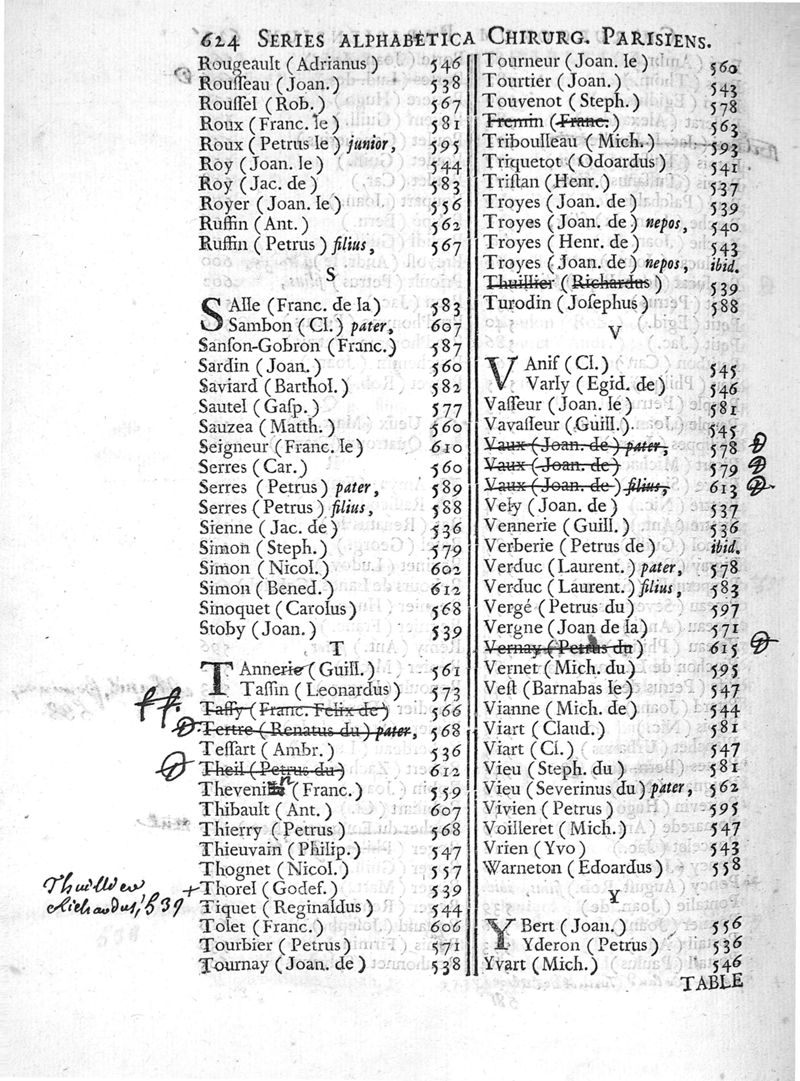 624 SERIES ALPHABETICA CHIRURG. PARISIENS.
Rougeault (Adrianus) 546
Rouſſeau (Joan.) 538
Rouſſel (Rob.) 567
Roux (Franc. le) 581
Roux (Petrus le) junior, 595
Roy (Joan. le) 544
Roy (Jac. de) 583
Royer (Joan. le) 556
Ruffin (Ant.) 562
Ruffin (Petrus) filius, 567
S
SAlle (Franc. de la) 583
Sambon (Cl.) pater, 607
Sanſon-Gobron (Franc.) 587
Sardin (Joan.) 560
Saviard (Barthol.) 582
Sautel (Gaſp.) 577
Sauzea (Matth.) 560
Seigneur (Franc. le) 610
Serres (Car.) 560
Serres (Petrus) pater, 589
Serres (Petrus) filius, 588
Sienne (Jac. de) 536
Simon (Steph.) 579
Simon (Nicol.) 602
Simon (Bened.) 612
Sinoquet (Carolus) 568
Stoby (Joan.) 539
T
TAnnerie (Guill.) 561
Taſſin (Leonardus) 573
ff. Taſſy (Franc. Felix de) 566
Tertre (Renatus du) pater, 568
Teſſart (Ambr.) 536
Theil (Petrus du) 612
Thevenin (Franc.) 559
Thibault (Ant.) 607
Thierry (Petrus) 568
Thieuvain (Philip.) 547
Thognet (Nicol.) 557
Thuillier
Richardus, 539
+Thorel (Godef.) 539
Tiquet (Reginaldus) 544
Tolet (Franc.) 606
Tourbier (Petrus) 571
Tournay (Joan. de) 538
Tourneur (Joan. le) 560
Tourtier (Joan.) 543
Touvenot (Steph.) 578
Tremin (Franc.) 563
Triboulleau (Mich.) 593
Triquetot (Odoardus) 541
Triſtan (Henr.) 537
Troyes (Joan. de) 539
Troyes (Joan. de) nepos, 540
Troyes (Henr. de) 543
Troyes (Joan. de) nepos, ibid.
Thuillier (Richardus) 539
Turodin (Joſephus) 588
V
VAnif (Cl.) 545
Varly (Egid. de) 546
Vaſſeur (Joan. le) 581
Vavaſſeur (Guill.). 545
Vaux (Joan. de) pater, 578
Vaux (Joan. de) 579
Vaux (Joan. de) filius, 613
Vely (Joan. de) 537
Vennerie (Guill.) 536
Verberie (Petrus de) ibid.
Verduc (Laurent.) pater, 578
Verduc (Laurent.) filius, 583
Vergé (Petrus du) 597
Vergne (Joan de la) 571
Vernay (Petrus du) 615
Vernet (Mich. du) 595
Veſt (Barnabas le) 547
Vianne (Mich. de) 544
Viart (Claud.) 581
Viart (Cl.) 547
Vieu (Steph. du) 581
Vieu (Severinus du) pater, 562
Vivien (Petrus) 595
Voilleret (Mich.) 547
Vrien (Yvo) 543
Warneton (Edoardus) 558
Y
YBert (Joan.) 556
Yderon (Petrus) 536
Yvart (Mich.) 546
TABLE